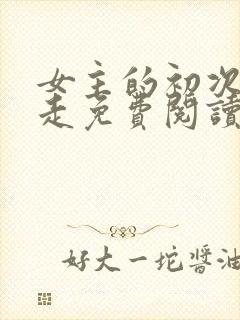 女主的初次
走免費閱讀
好大一坨醬油